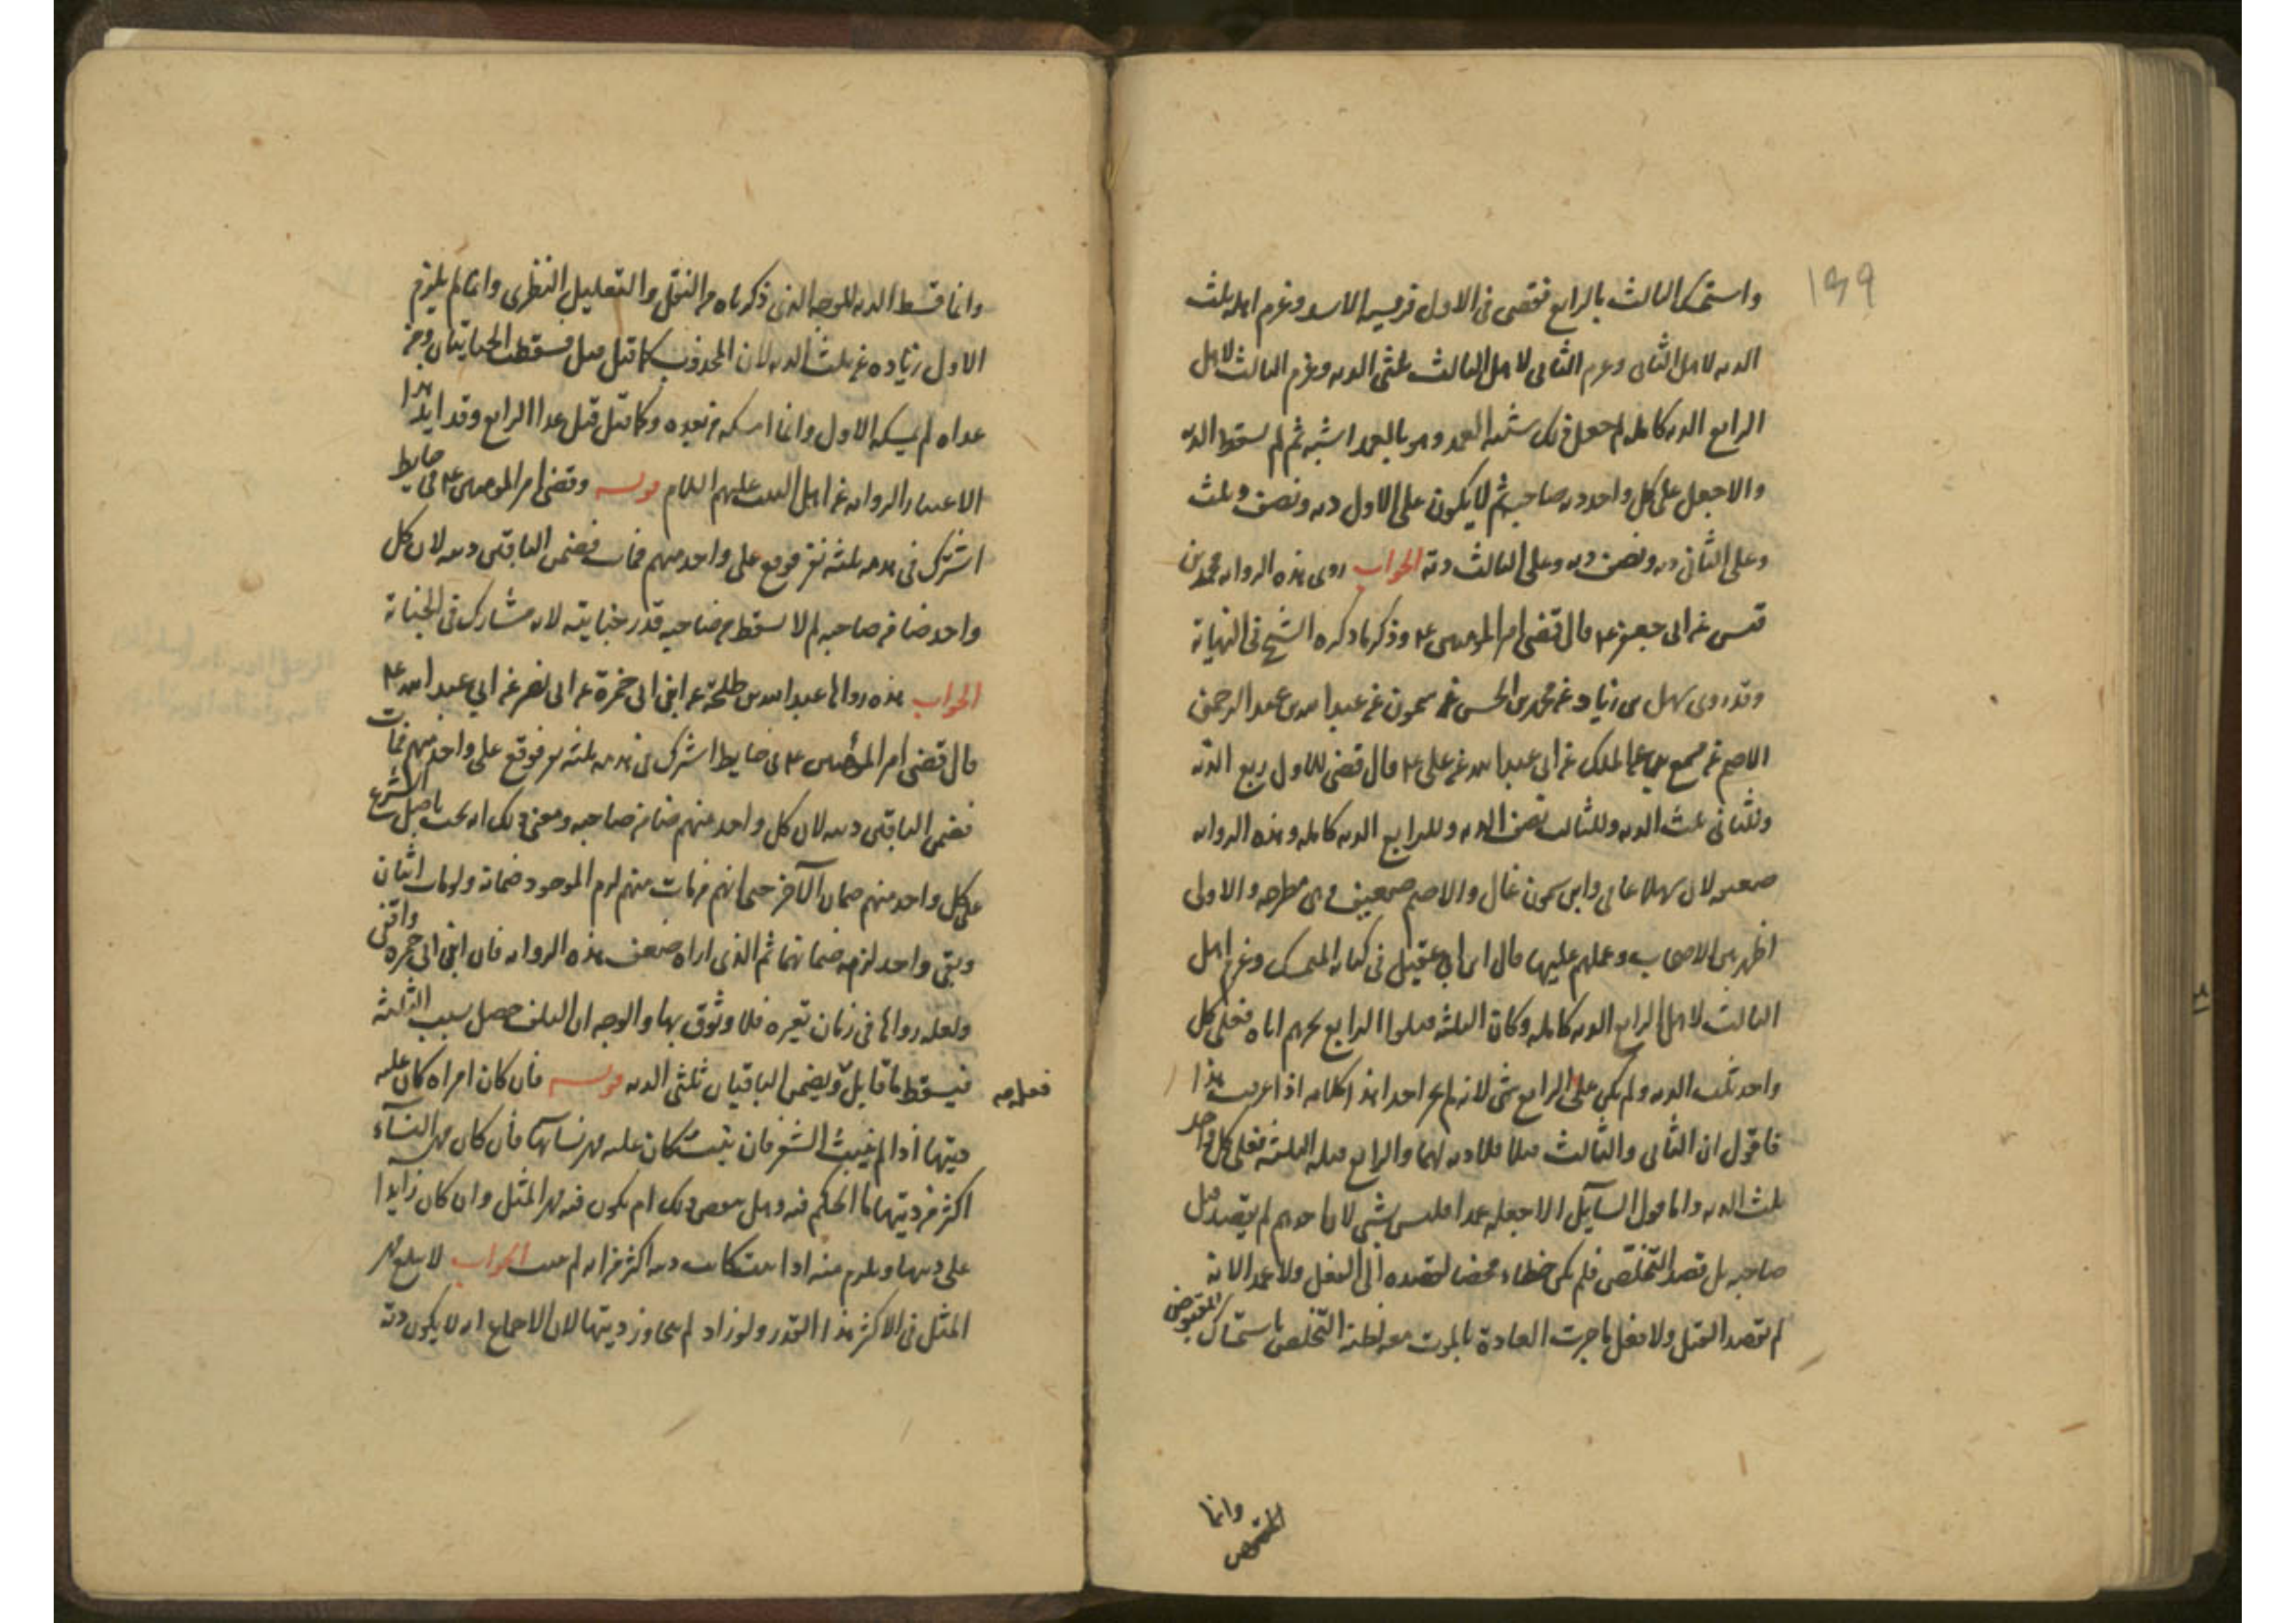 ١٣٩
واستمسك الثالث بالرابع فقضى فى الاول فريسه الاسد وغرم اهله ثلث
الديه لاهل الثانى وغرم الثانى لاهل الثالث ثلثى الديه وغرم الثالث لاهل
الرابع الديه كامله لم جعل ذلك شبه العمد وهو بالعمد اشبه ثم لم سقط الديه
والا جعل على كل واحد ديه صاحبه ثم لا يكون على الاول ديه ونصف وثلث
وعلى الثانى ديه ونصف ديه وعلى الثالث دية الجواب روى هذه الروايه محمد بن
قيس عن ابى جعفر ع قال قضى امير المومنين ع وذكر ما ذكره الشيخ فى النهاية
وقد روى سهل بن زياد عن محمد بن الحسن عن سمون عن عبد الله بن عبد الرحمن
الاصم عن مسمع بن عبد الملك عن ابى عبد الله عن على ع قال قضى للاول ربع الدية
وللثانى ثلث الديه وللثالث نصف الديه وللرابع الديه كامله وهذه الروايه
ضعيفه لان سهلا عامى وابن سمون غال والاصم ضعيف فهى مطرحه والاولى
اظهر بين الاصحاب وعملهم عليها قال ابن ابى عقيل فى كتابه المتمسك وغرم اهل
الثالث لاهل الرابع الديه كامله وكان الثلثه قتلوا الرابع بجرهم اياه فعلى كل
واحد ثلث الديه ولم يكن على الرابع شى لانه لم يجر احدا هذا كلامه اذا عرفت هذا
فاقول ان الثانى والثالث قتلا فلا ديه لهما والرابع قتله الثلثه فعلى كل واحد
ثلث الديه واما قول السايل الا جعله عمدا فليس بشى لان احدهم لم يقصد قتل
صاحبه بل قصد التخلص فلم يكن خطاء محضا لقصده الى الفعل ولا عمدا لانه
لم يقصد القتل ولا فعل ما جرت العادة بالموت معه لظنه التخلص باستمساك المقبوض
وانما
وانما قسط الديه للوجه الذى ذكرناه من النقل والتعليل النظرى وانما لم يلزم
الاول زياده عن ثلث الديه لان المجذوب كما قتل قتل فسقطت الجنايتان ومن
عداه لم يمسكه الاول وانما امسكه من بعده وكما قتل قتل عدا الرابع وقد ايد هذا
الاعتبار الروايه عن اهل البيت عليهم السلام قوله وقضى امير المومنين ع فى حايط
اشترك فى هدمه ثلثه نفر فوقع على واحد منهم فمات فضمن الباقين ديته لان كل
واحد ضامن صاحبه لم لا سقط من ضامنيه قدر جنايته لانه مشارك فى الجناية
الجواب هذه رواها عبد الله بن طلحة عن ابن ابى حمزة عن ابى بصير عن ابى عبد الله ع
قال قضى امير المؤمنين ع فى حايط اشترك فى هدمه ثلثه نفر فوقع على واحد منهم فمات
فضمن الباقين ديته لان كل واحد منهم ضامن صاحبه ومعنى ذلك انه يجب باصل الشرع
على كل واحد منهم ضمان الآخر حتى انهم من مات منهم لزم الموجود ضمانه ولو مات اثنان
وبقى واحد لزمه ضمانهما ثم الذى اراه ضعف هذه الروايه فان ابن ابى حمزه واقفى
ولعله رواها فى زمان تغيره فلا وثوق بها والوجه ان التلف حصل بسبب الثلثة
فيسقط ما قابل ويضمن الباقيان ثلثى الديه قوله فان كان امراه كان عليه
ديتها اذا لم ينبت الشعر فان نبت كان عليه مهر نسآئها فان كان مهر النسآء
اكثر من ديتها ما الحكم فيه وهل ينقص ذلك ام يكون فيه مهر المثل وان كان زايدا
على ديتها ويلزم منه اذا نبت كانت ديه اكثر من انه لم ينبت الجواب لا يبلغ مهر
المثل فى الاكثر هذا القدر ولو زاد لم يتجاوز ديتها لان الاجماع انه لا يكون دية